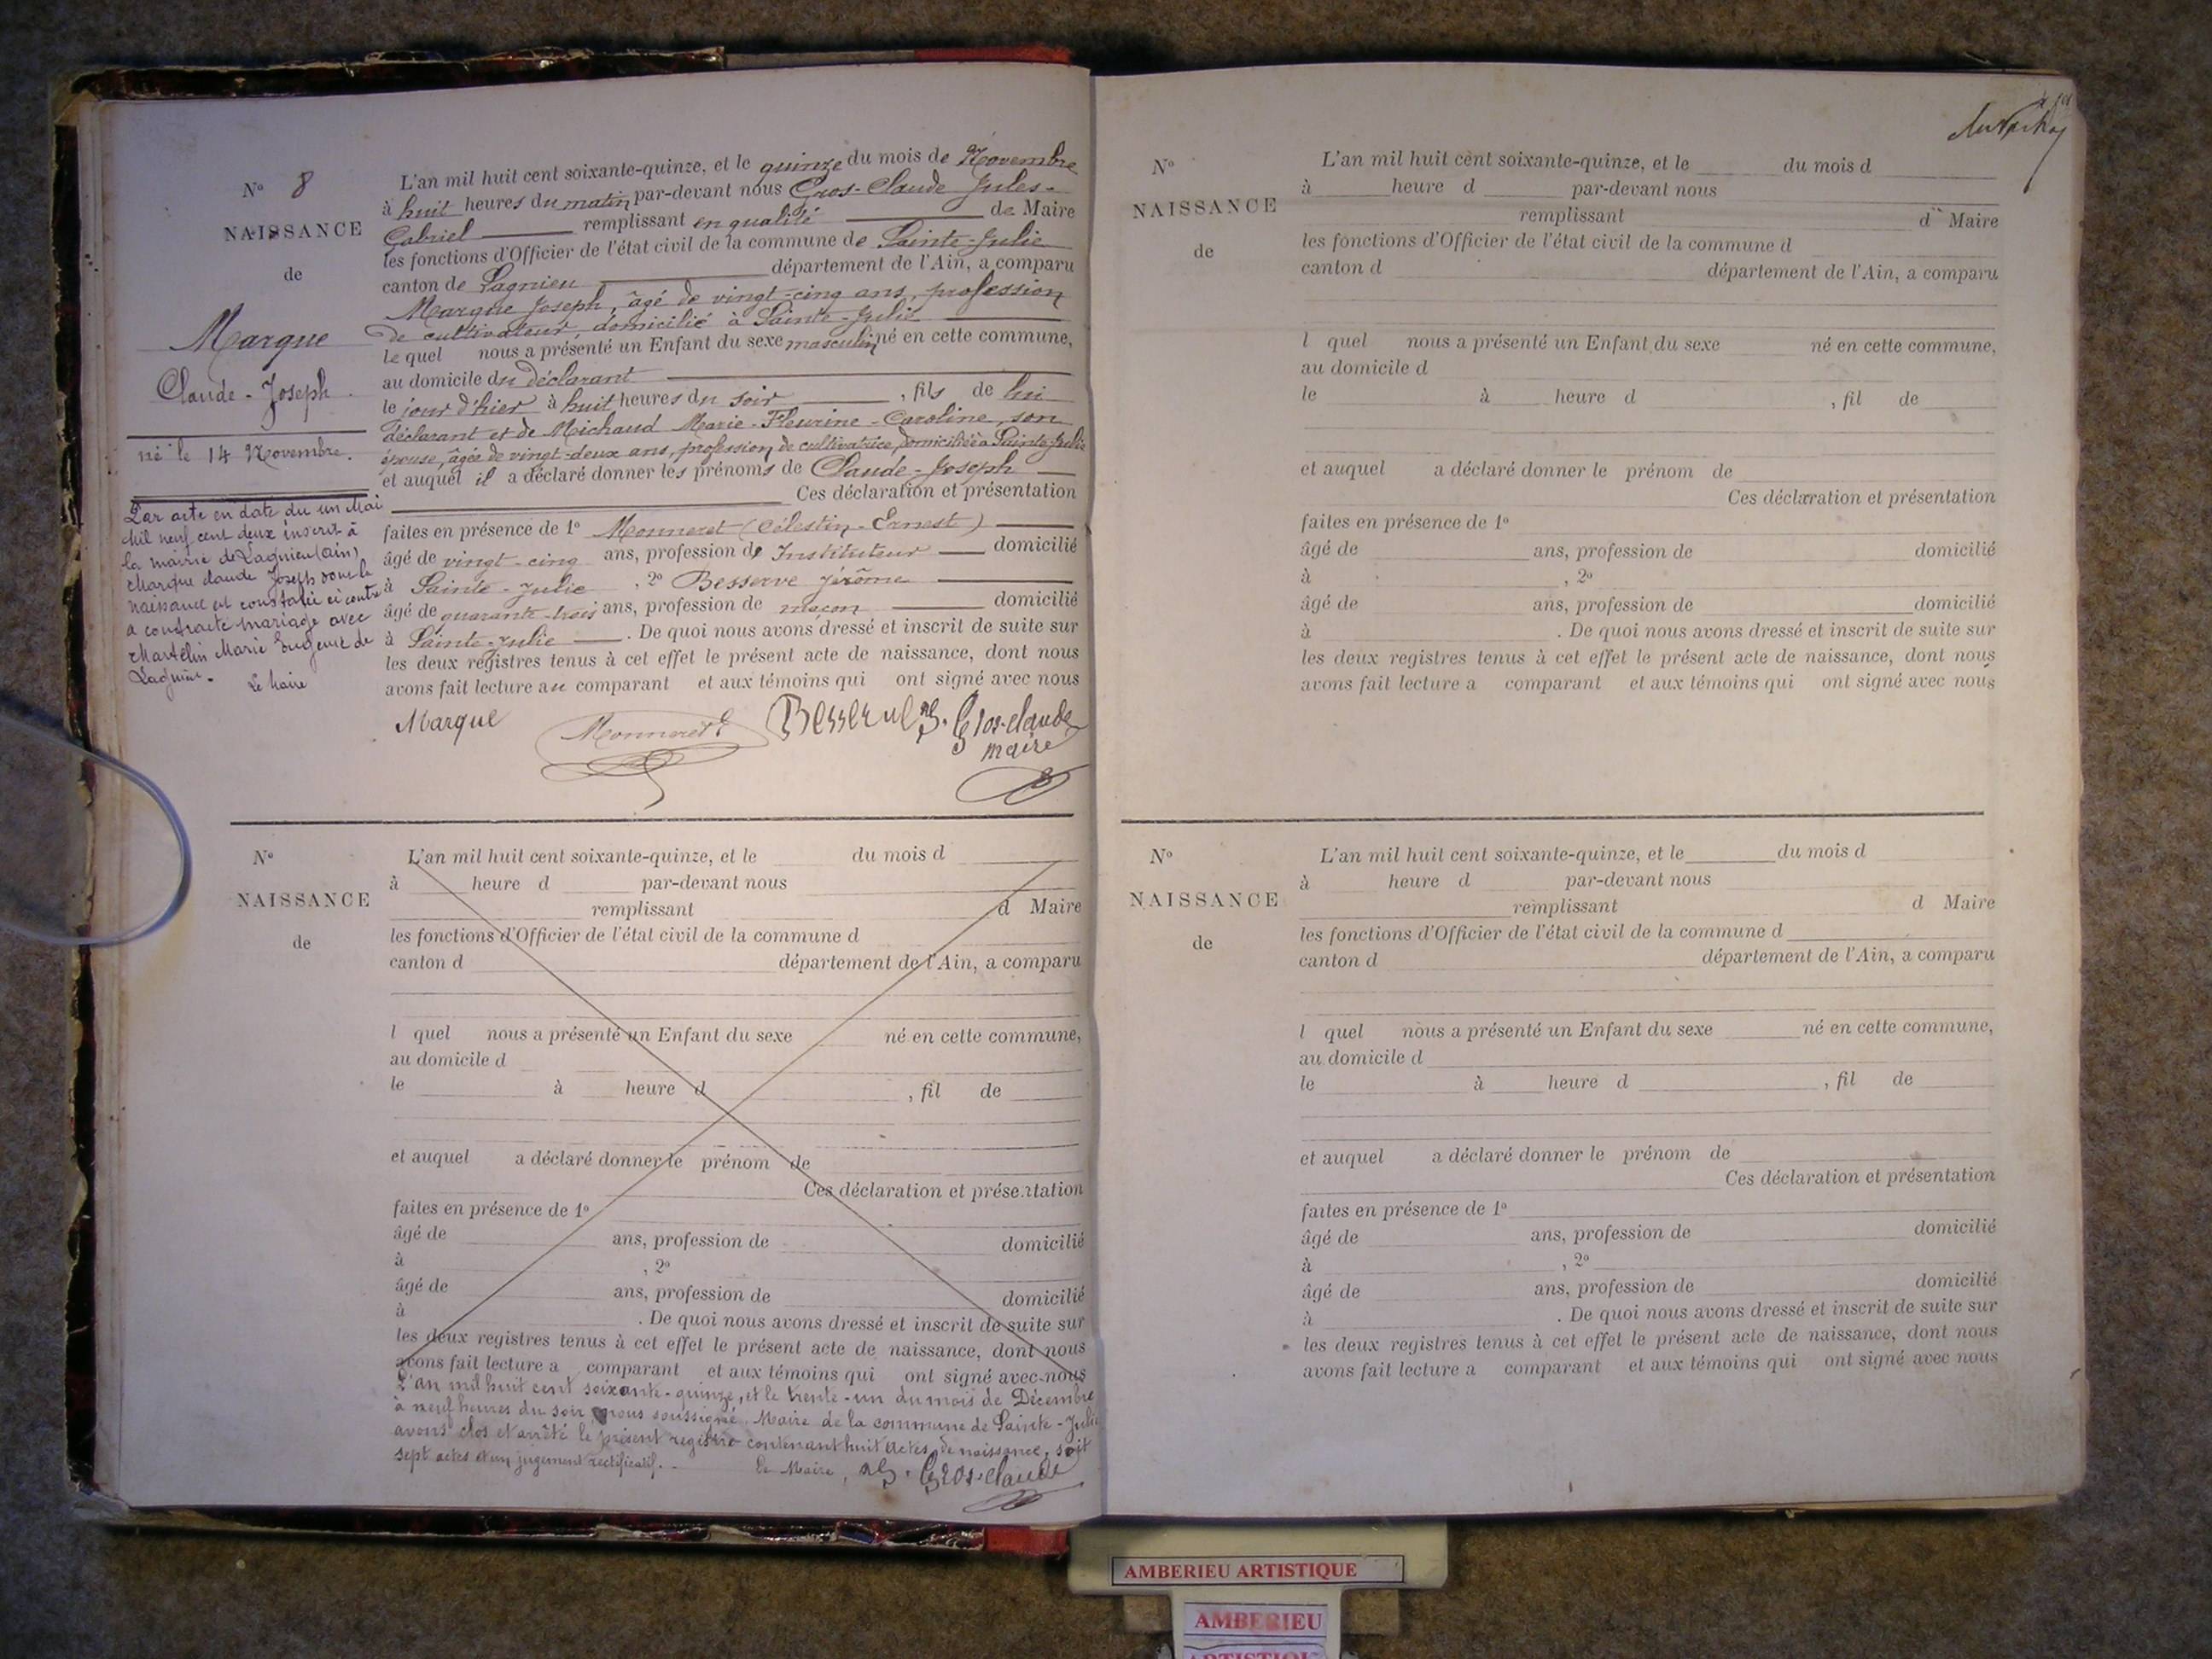 N° 8
NAISSANCE
de
Marque
Claude-Joseph.
né le 14 Novembre.
Par acte en date du un Mai
Mil neuf cent deux inscrit à
la mairie de Lagnieu (Ain)
Marque Claude Joseph dont la
naissance est constatée ci contre
a contracté mariage avec
Martelin Marie Eugenie de
Lagnieu.
Le Maire
L'an mil huit cent soixante-quinze, et le quinze du mois de Novembre
à huit heures du matin par-devant nous Gros-Claude Jules-
Gabriel remplissant en qualité de Maire
les fonctions d'Officier de l'état civil de la commune de Sainte-Julie
canton de Lagnieu département de l'Ain, a comparu
Marque Joseph, âgé de vingt-cinq ans, profession
de cultivateur, domicilié à Sainte-Julie
le quel nous a présenté un Enfant du sexe masculin né en cette commune,
au domicile du déclarant
le jour d'hier à huit heures du soir , fils de lui
déclarant et de Michaud Marie-Fleurine-Caroline, son
épouse, âgée de vingt-deux ans, profession de cultivatrice, domiciliée à Sainte-Julie
et auquel il a déclaré donner les prénoms de Claude-Joseph
Ces déclaration et présentation
faites en présence de 1° Monneret (Célestin-Ernest)
âgé de vingt-cinq ans, profession de Instituteur domicilié
à Sainte-Julie , 2° Besserve Jérôme
âgé de quarante-trois ans, profession de maçon domicilié
à Sainte-Julie . De quoi nous avons dressé et inscrit de suite sur
les deux registres tenus à cet effet le présent acte de naissance, dont nous
avons fait lecture au comparant et aux témoins qui ont signé avec nous
Marque Monneret Besserve Gros-Claude
maire
N°
NAISSANCE
de
L'an mil huit cent soixante-quinze, et le du mois d
à heure d par-devant nous
remplissant d Maire
les fonctions d'Officier de l'état civil de la commune d
canton d département de l'Ain, a comparu
l quel nous a présenté un Enfant du sexe né en cette commune,
au domicile d
le à heure d , fil de
et auquel a déclaré donner le prénom de
Ces déclaration et présentation
faites en présence de 1°
âgé de ans, profession de domicilié
à , 2°
âgé de ans, profession de domicilié
à . De quoi nous avons dressé et inscrit de suite sur
les deux registres tenus à cet effet le présent acte de naissance, dont nous
avons fait lecture a comparant et aux témoins qui ont signé avec nous
L'an mil huit cent soixante-quinze, et le trente-un du mois de Décembre
à neuf heures du soir, nous soussigné, Maire de la commune de Sainte-Julie
avons clos et arrêté le présent registre contenant huit actes de naissance, soit
sept actes et un jugement rectificatif.
Le Maire, Gros-Claude
N°
NAISSANCE
de
L'an mil huit cent soixante-quinze, et le du mois d
à heure d par-devant nous
remplissant d Maire
les fonctions d'Officier de l'état civil de la commune d
canton d département de l'Ain, a comparu
l quel nous a présenté un Enfant du sexe né en cette commune,
au domicile d
le à heure d , fil de
et auquel a déclaré donner le prénom de
Ces déclaration et présentation
faites en présence de 1°
âgé de ans, profession de domicilié
à , 2°
âgé de ans, profession de domicilié
à . De quoi nous avons dressé et inscrit de suite sur
les deux registres tenus à cet effet le présent acte de naissance, dont nous
avons fait lecture a comparant et aux témoins qui ont signé avec nous
N°
NAISSANCE
de
L'an mil huit cent soixante-quinze, et le du mois d
à heure d par-devant nous
remplissant d Maire
les fonctions d'Officier de l'état civil de la commune d
canton d département de l'Ain, a comparu
l quel nous a présenté un Enfant du sexe né en cette commune,
au domicile d
le à heure d , fil de
et auquel a déclaré donner le prénom de
Ces déclaration et présentation
faites en présence de 1°
âgé de ans, profession de domicilié
à , 2°
âgé de ans, profession de domicilié
à . De quoi nous avons dressé et inscrit de suite sur
les deux registres tenus à cet effet le présent acte de naissance, dont nous
avons fait lecture a comparant et aux témoins qui ont signé avec nous
AMBERIEU ARTISTIQUE
AMBERIEU
ARTISTIQUE